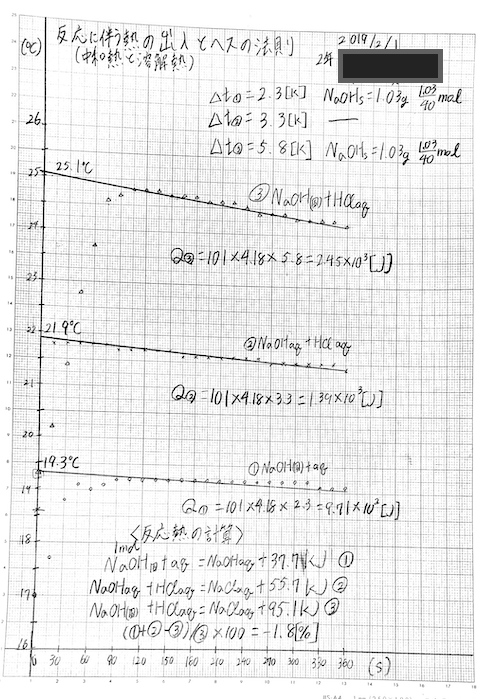 反応に伴う熱の出入とヘスの法則
(中和熱と溶解熱)
2019/2/1
2年
(℃)
Δt① = 2.3[K] NaOHs = 1.03g 1.03/40 mol
Δt② = 3.3[K] —
Δt③ = 5.8[K] NaOHs = 1.03g 1.03/40 mol
26
25
25.1℃
③ NaOH(固)+HClaq
24
Q③ = 101×4.18×5.8 = 2.45×10³[J]
23
22
21.9℃
② NaOHaq + HClaq
21
Q② = 101×4.18×3.3 = 1.39×10³[J]
20
19.3℃
① NaOH(固)+aq
19
Q① = 101×4.18×2.3 = 9.71×10²[J]
〈反応熱の計算〉
18
1mol
NaOH(固)+aq = NaOHaq + 37.7kJ ①
NaOHaq + HClaq = NaClaq + 55.7kJ ②
17
NaOH(固) + HClaq = NaClaq + 95.1kJ ③
(①+②-③)/③ ×100 = -1.8[%]
16
0 30 60 90 120 150 180 210 240 270 300 330 360 (s)